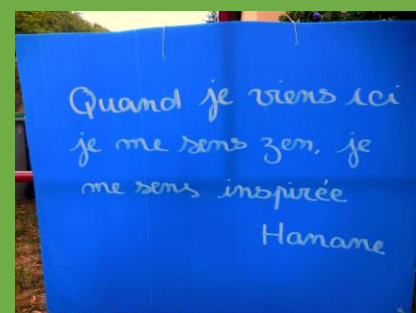 Quand je viens ici
je me sens zen, je
me sens inspirée
Hanane